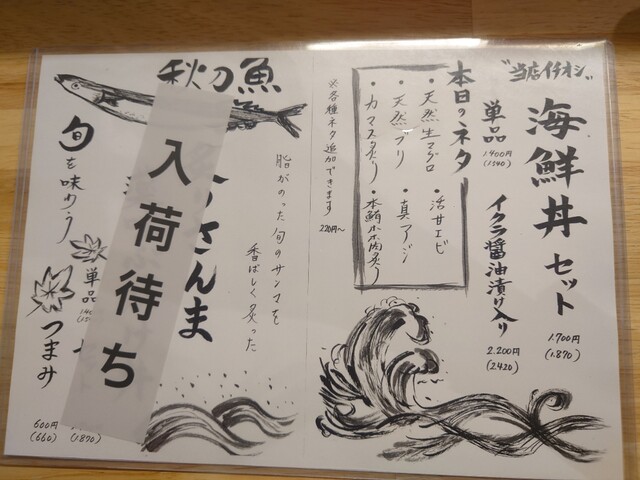 "当店イチオシ"
海鮮丼セット
1.700円
(1.870)
単品
1.400円
(1.540)
イクラ醤油漬け入り
2.200円
(2.420)
本日のネタ
・天然生マグロ
・活甘エビ
・天然ブリ
・真アジ
・カマス(炙り)
・本鮪ホホ肉(炙り)
※各種ネタ追加できます
220円〜
秋刀魚
脂がのった旬のサンマを
香ばしく炙った
さんま
入荷待ち
旬を味わう
単品
つまみ
600円
(660)
(1.870)